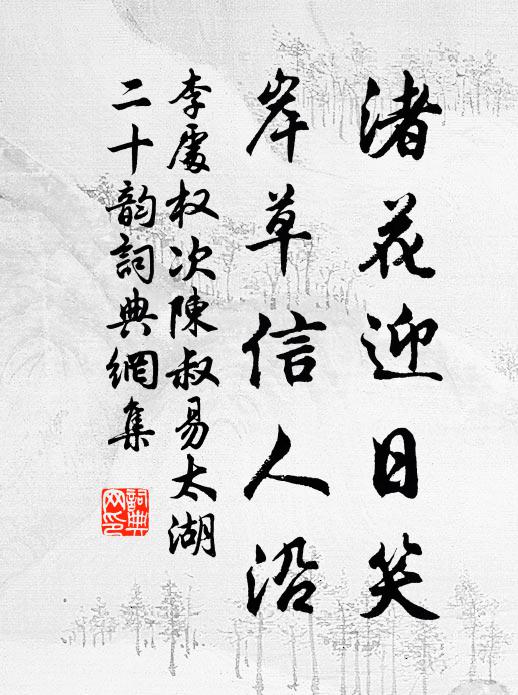 渚花迎日笑
岸草信人沿
李處权次陳叔易太湖
二十韵詞典網集
詞典网印